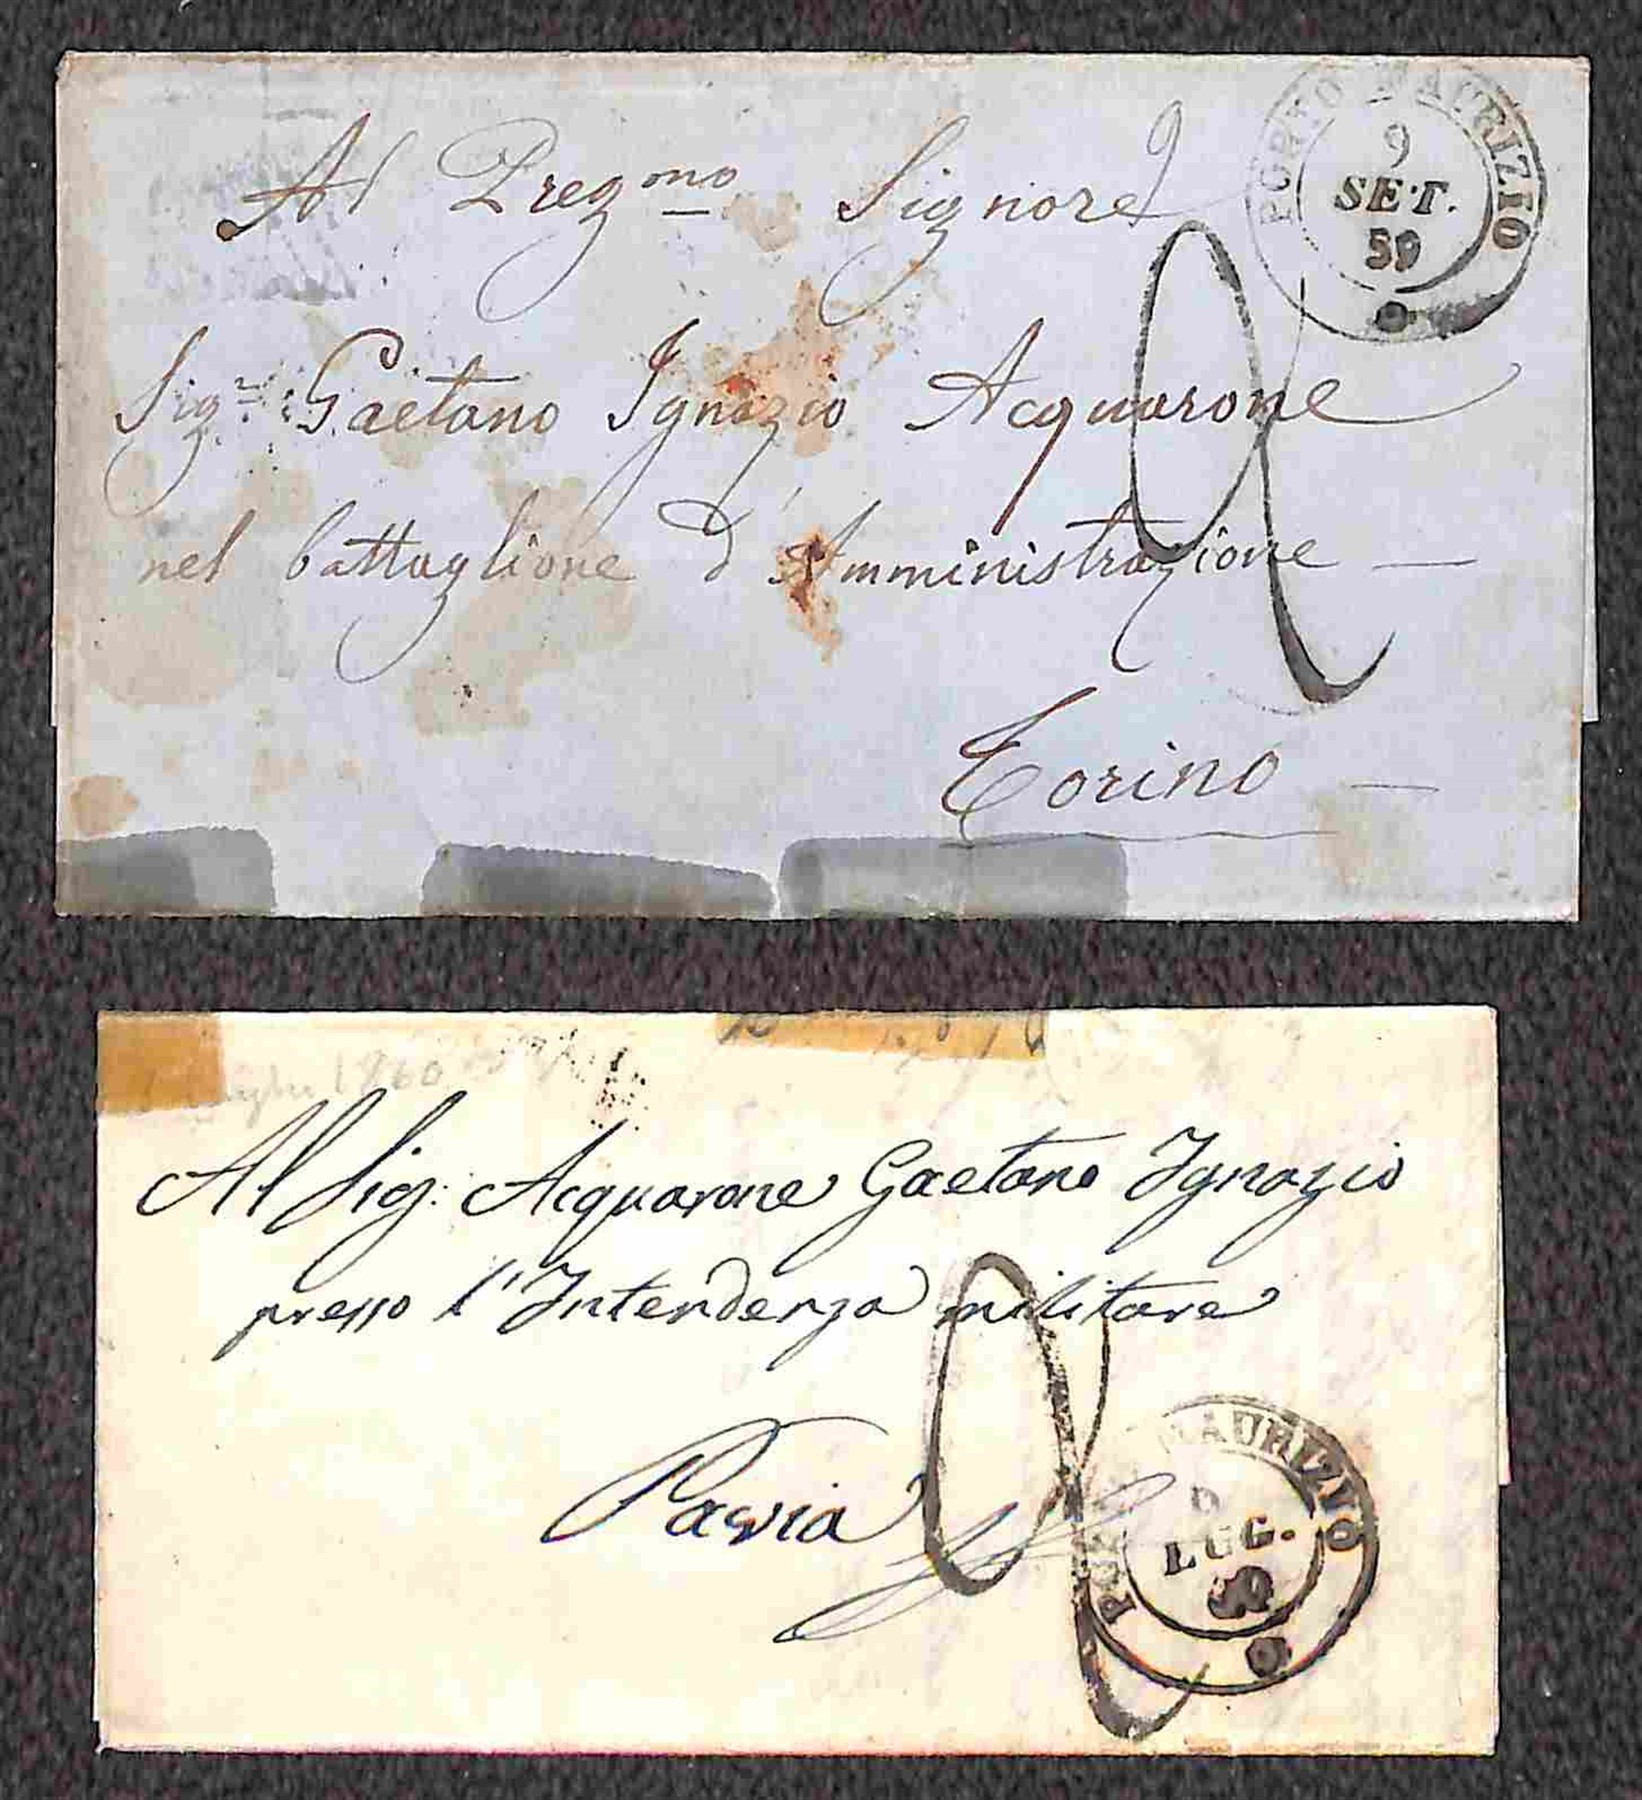 Al Preg.mo Signore
PORTO MAURIZIO
9
SET.
59
Sig.r Gaetano Ignazio Acquarone
nel battaglione d'Amministrazione
2
Torino
1860
Al Sig: Acquarone Gaetano Ignazio
presso l'Intendenza militare
2
Pavia
PORTO MAURIZIO
9
LUG.